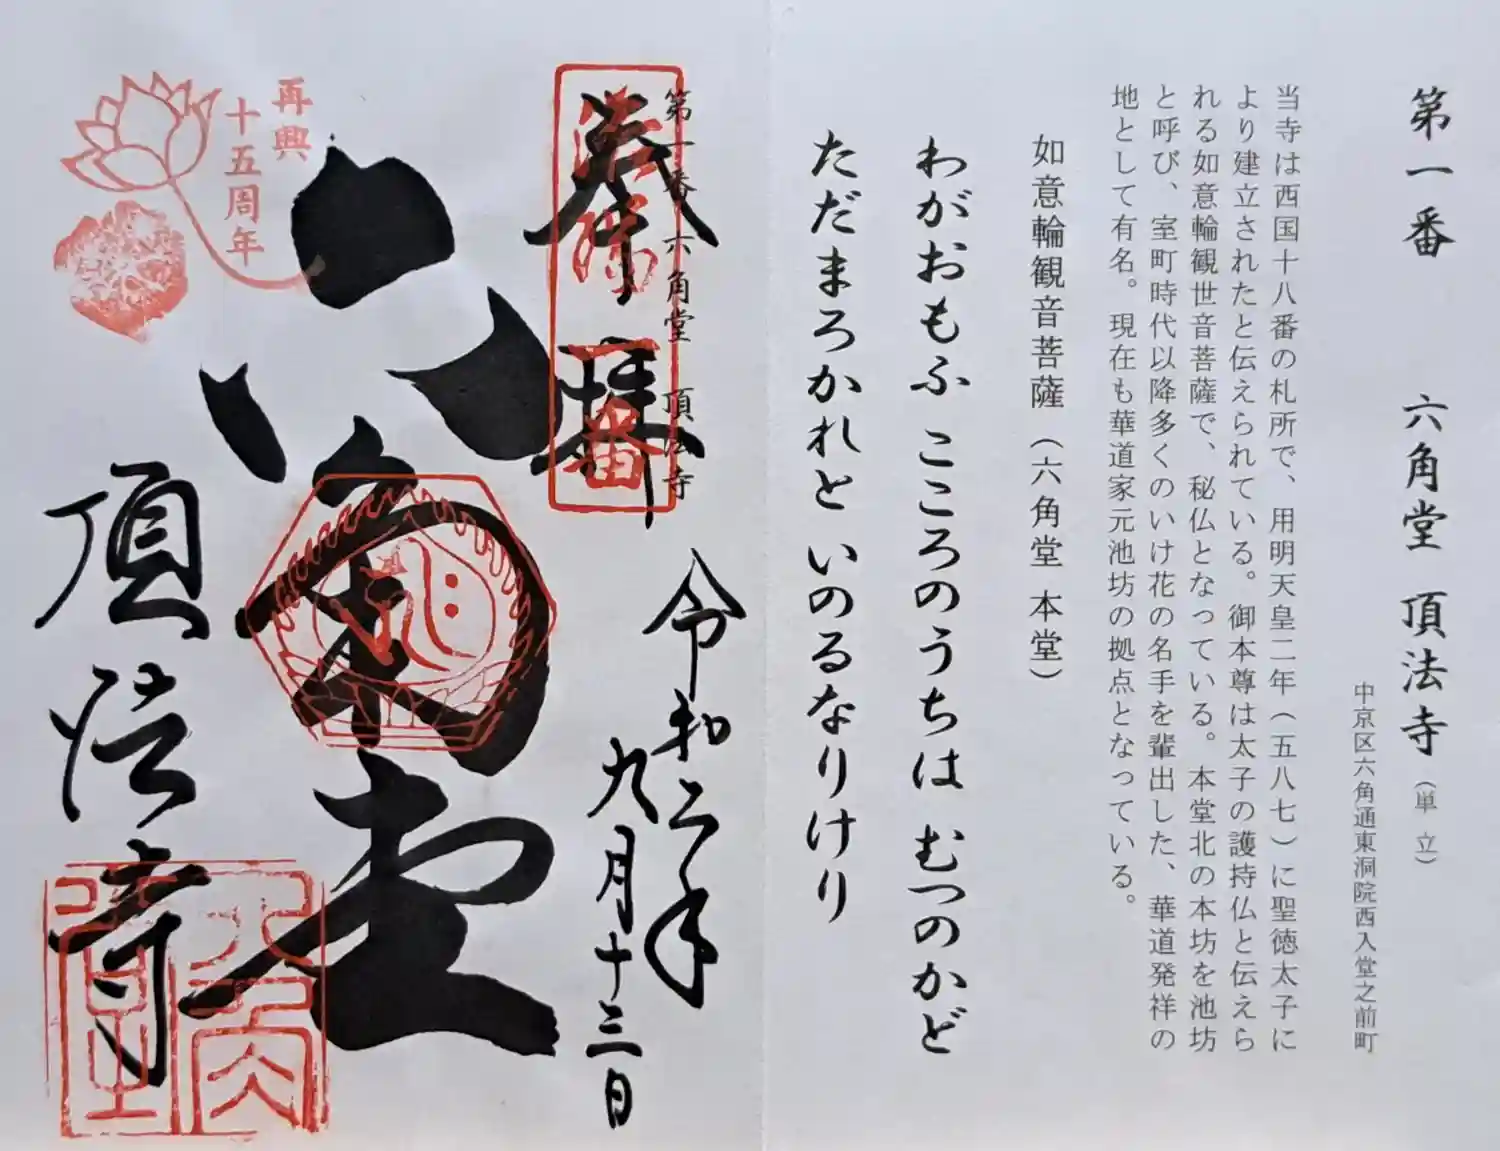 第一番 六角堂 頂法寺（単立）
中京区六角通東洞院西入堂之前町
当寺は西国十八番の札所で、用明天皇二年（五八七）に聖徳太子に
より建立されたと伝えられている。御本尊は太子の護持仏と伝えら
れる如意輪観世音菩薩で、秘仏となっている。本堂北の本坊を池坊
と呼び、室町時代以降多くのいけ花の名手を輩出した、華道発祥の
地として有名。現在も華道家元池坊の拠点となっている。
如意輪観音菩薩（六角堂 本堂）
わがおもふ こころのうちは むつのかど
ただまろかれと いのるなりけり
第一番 六角堂 頂法寺
奉拝
洛陽
一番
令和二年
九月十三日
六角堂
頂法寺
再興
十五周年
六角堂